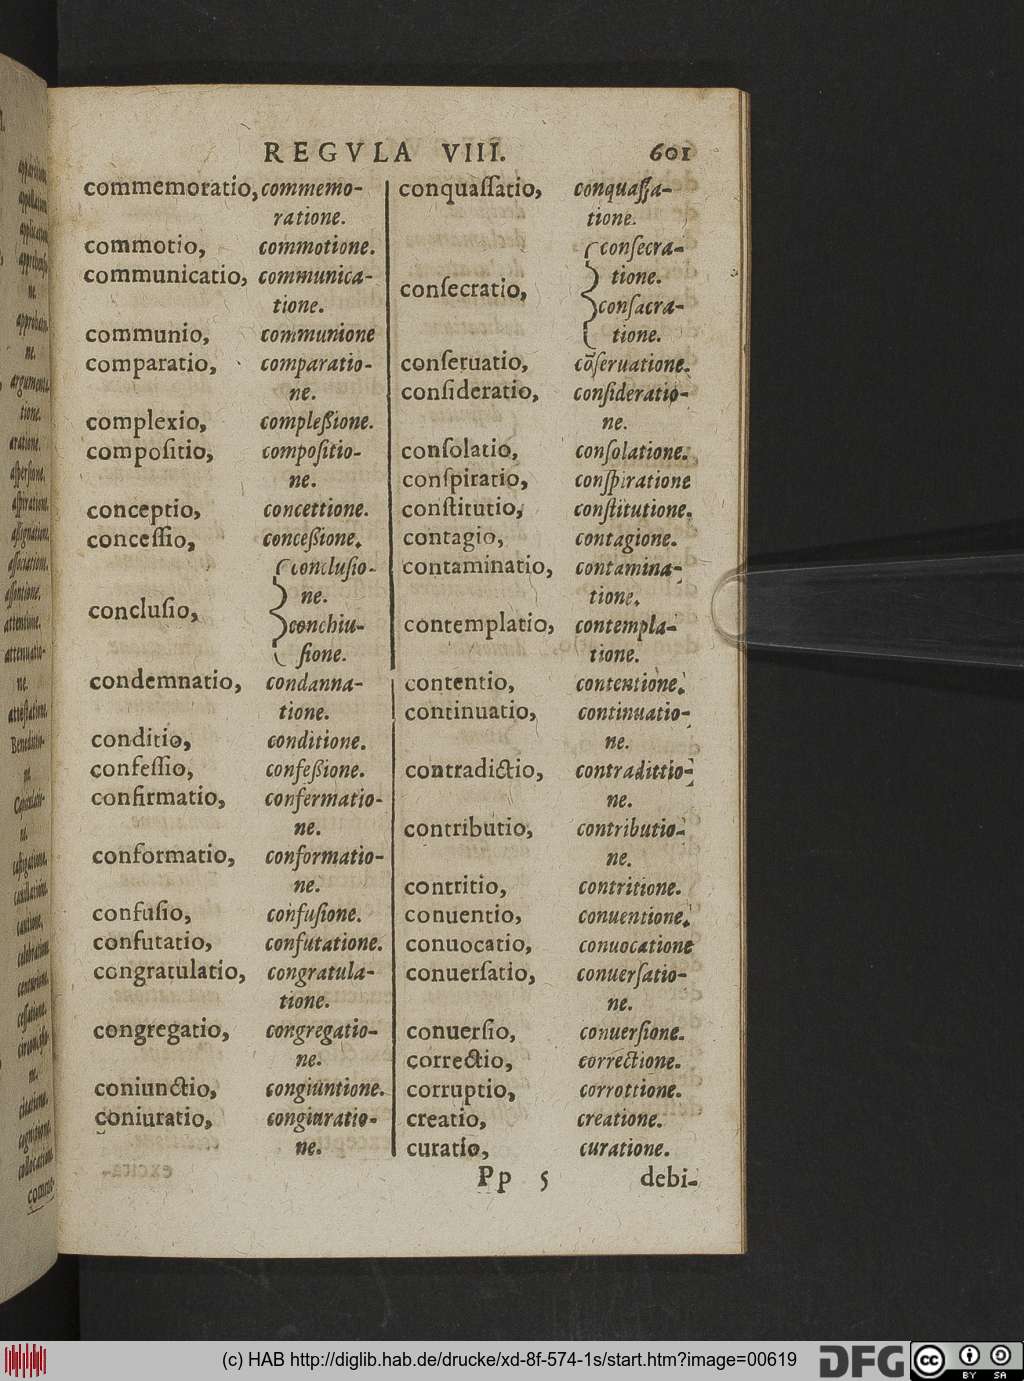 REGVLA VIII. 601
commemoratio, commemo-
ratione.
commotio, commotione.
communicatio, communica-
tione.
communio, communione
comparatio, comparatio-
ne.
complexio, compleßione.
compoſitio, compoſitio-
ne.
conceptio, concettione.
conceſſio, conceßione.
concluſio-
ne.
concluſio,
conchiu-
ſione.
condemnatio, condanna-
tione.
conditio, conditione.
confeſſio, confeßione.
confirmatio, confermatio-
ne.
conformatio, conformatio-
ne.
confuſio, confuſione.
confutatio, confutatione.
congratulatio, congratula-
tione.
congregatio, congregatio-
ne.
coniunctio, congiuntione.
coniuratio, congiuratio-
ne.
conquaſſatio, conquaſſa-
tione.
conſecra-
tione.
conſecratio,
conſacra-
tione.
conſeruatio, cõſeruatione.
conſideratio, conſideratio-
ne.
conſolatio, conſolatione.
conſpiratio, conſpiratione
conſtitutio, conſtitutione.
contagio, contagione.
contaminatio, contamina-
tione.
contemplatio, contempla-
tione.
contentio, contentione.
continuatio, continuatio-
ne.
contradictio, contradittio-
ne.
contributio, contributio-
ne.
contritio, contritione.
conuentio, conuentione.
conuocatio, conuocatione
conuerſatio, conuerſatio-
ne.
conuerſio, conuerſione.
correctio, correctione.
corruptio, corrottione.
creatio, creatione.
curatio, curatione.
Pp 5 debi-
(c) HAB http://diglib.hab.de/drucke/xd-8f-574-1s/start.htm?image=00619
DFG
cc BY SA